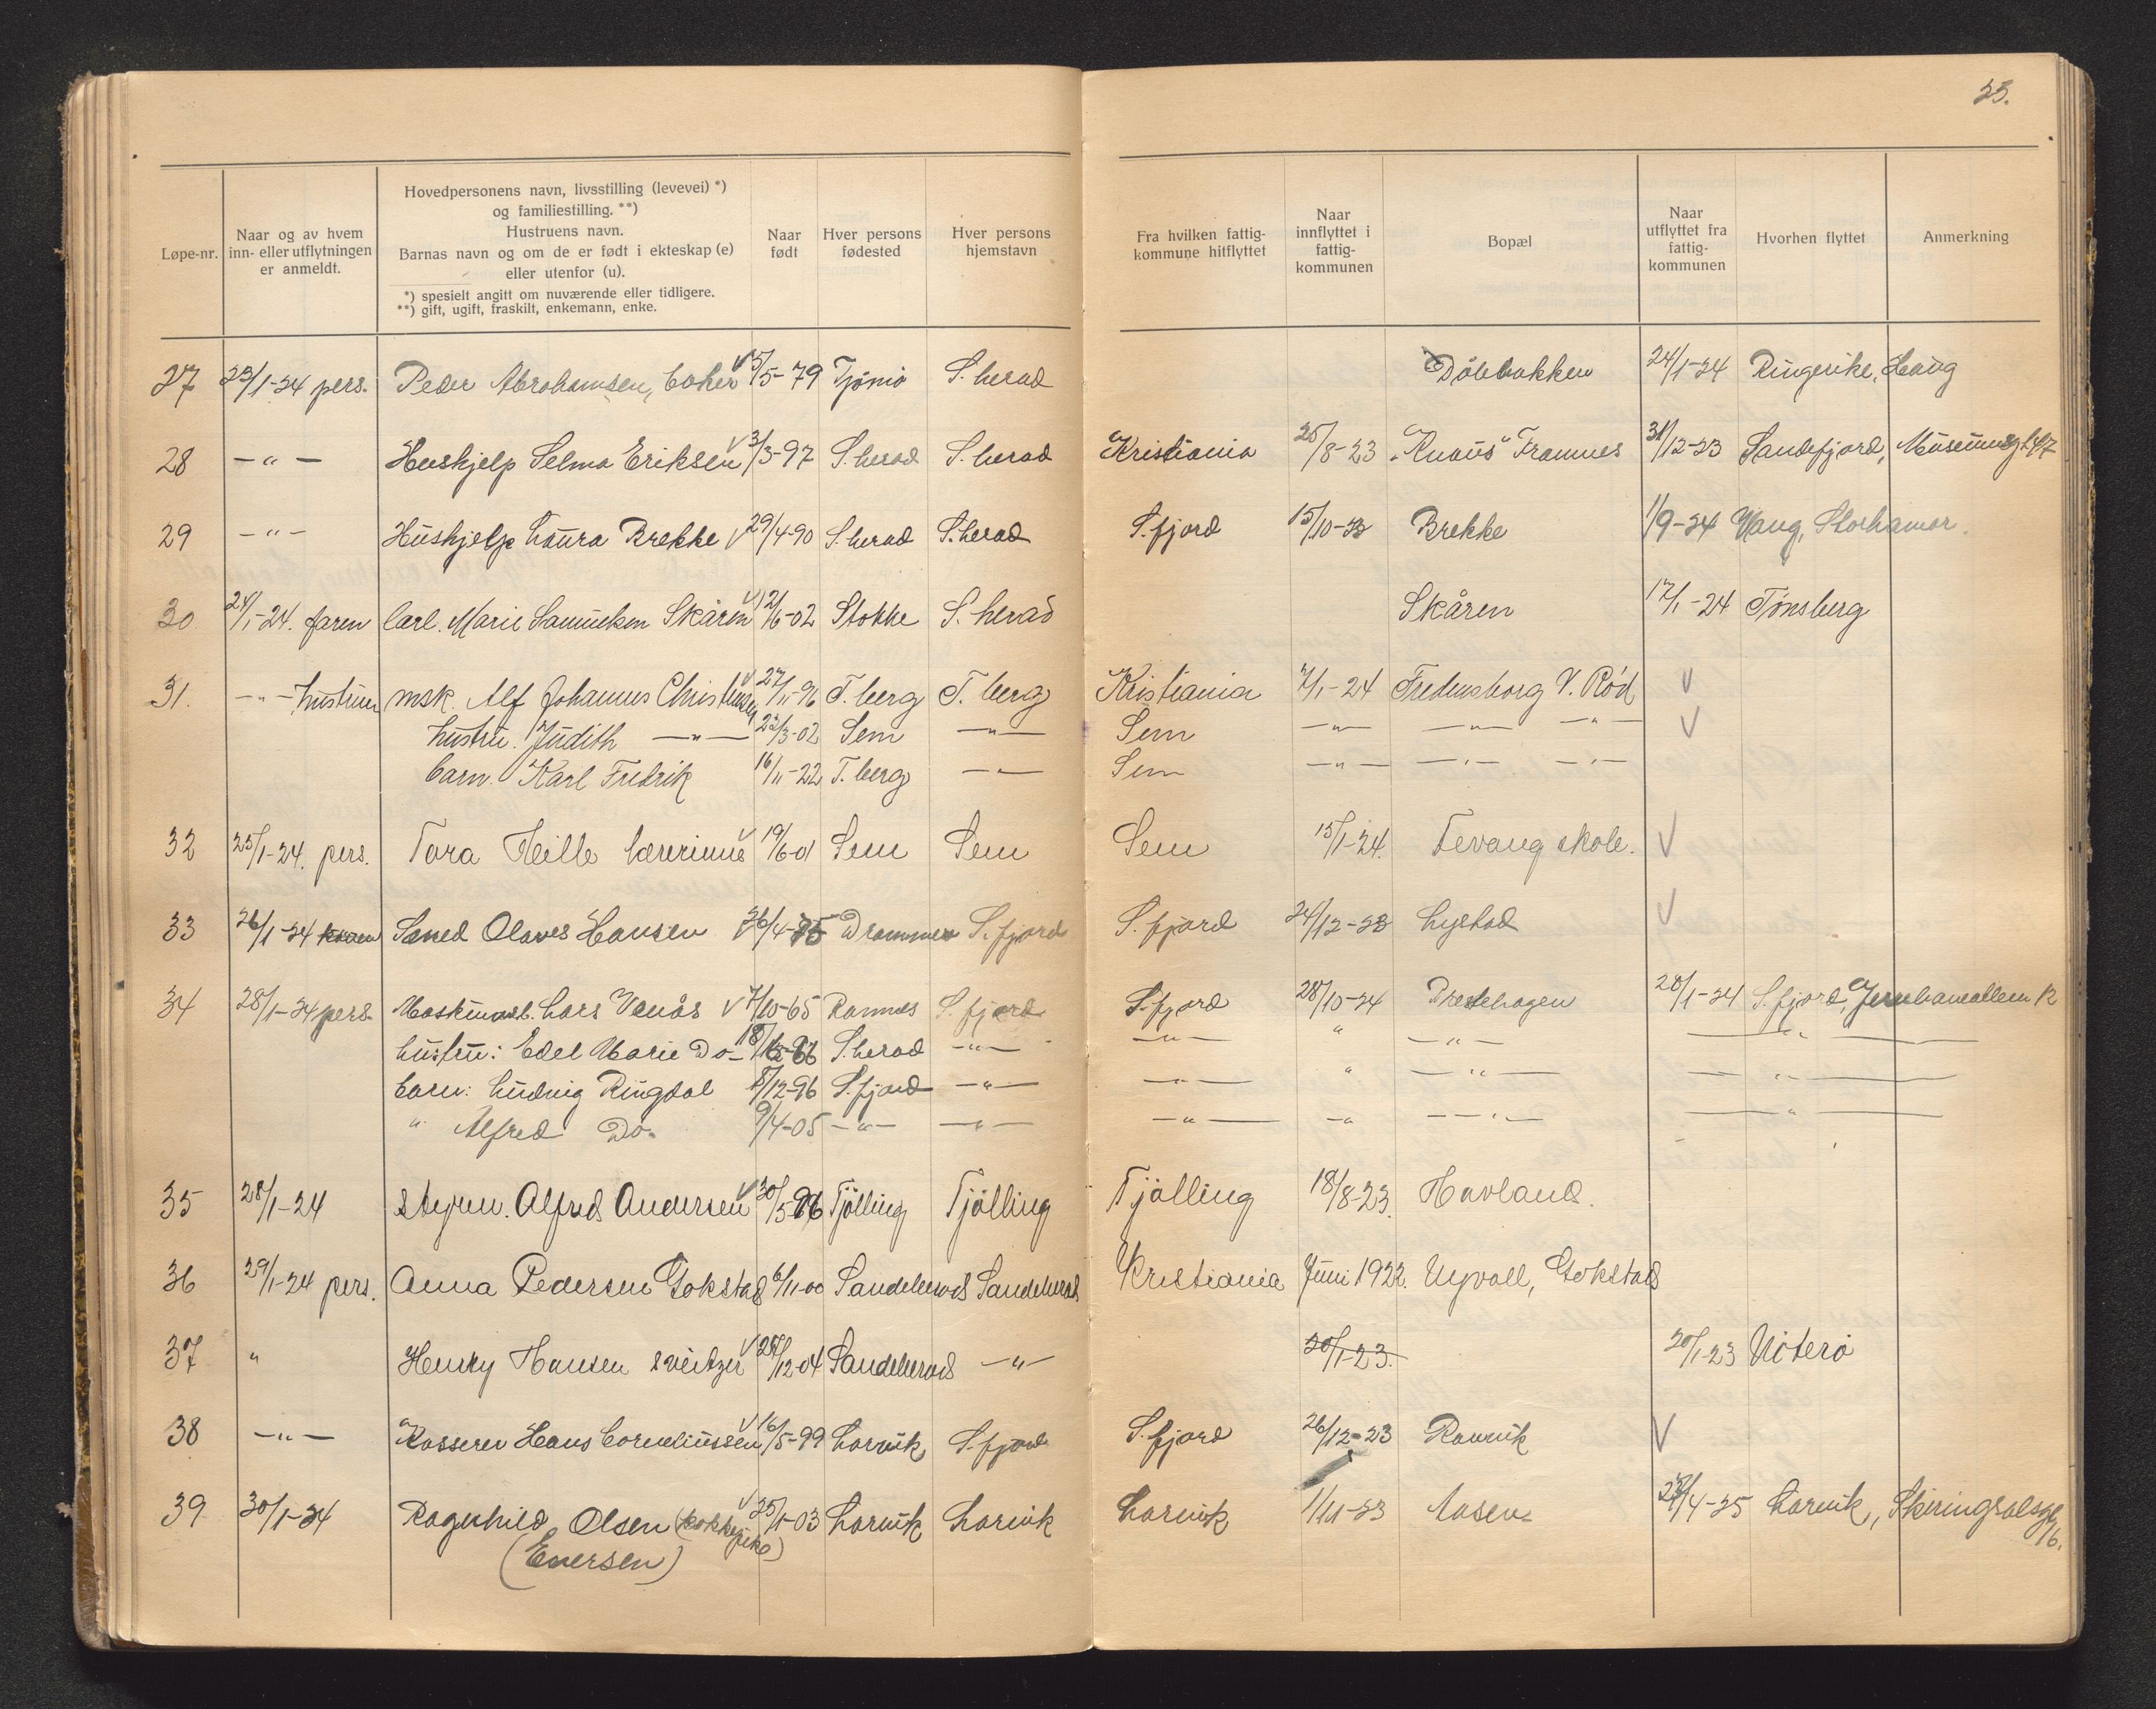 25.
Løpe-nr. Naar og av hvem inn- eller utflytningen er anmeldt. Hovedpersonens navn, livsstilling (levevei) *) og familiestilling. **) Hustruens navn. Barnas navn og om de er født i ekteskap (e) eller utenfor (u). *) spesielt angitt om nuværende eller tidligere. **) gift, ugift, fraskilt, enkemann, enke. Naar født Hver persons fødested Hver persons hjemstavn Fra hvilken fattigkommune hitflyttet Naar innflyttet i fattigkommunen Bopæl Naar utflyttet fra fattigkommunen Hvorhen flyttet Anmerkning
27 23/1-24 pers. Peder Abrahamsen, baker 5/5-79 Tjömö S. herad Dölebakken 24/1-24 Ringerike, Haug
28 -"- Huskjelp Selma Eriksen 3/3-97 S. herad S. herad Kristiania 25/8-23 "Knaus" Framnes 31/12-23 Sandefjord, Museumsg.
29 -"- Hushjelp Laura Brekke 29/4-90 S. herad S. herad S. fjord 15/10-23 Brekke 1/9-24 Vang, Storhamar.
30 24/1-24. faren Carl. Marie Samuelsen Skåren 12/6-02 Stokke S. herad Skåren 17/1-24 Tønsberg
31. -"- hustruen msk. Alf Johannes Christensen 27/11-96 T. berg T. berg Kristiania 7/1-24 Fredensborg V. Rød
hustru. Judith -"- 22/3-02 Sem -"- Sem -"- -"- -"-
barn. Karl Fredrik 16/11-22 T. berg -"- Sem -"- -"- -"-
32 25/1-24. pers. Tora Heille lærerinne 19/6-01 Sem Sem Sem 15/1-24. Fevang skole.
33 26/1-24 Olaves Hansen 26/4-75 Drammen S. fjord S. fjord 24/12-23 Lystad
34 28/1-24 pers. Lars Venås 7/10-65 Ramnes S. fjord S. fjord 28/10-24 Prestehagen 28/1-24 S. fjord, Jernbancalleen 12
hustru: Edel Marie Do- S. herad -"- -"- " -"- -"-
barn: Ludvig Ringdal 8/12-96 S. fjord -"- -"- " -"- -"-
" Alfred Do- 9/4-05 -"- -"- -"- -" -"- -"-
35 28/1-24 styrm. Alfred Andersen 30/5-96 Tjölling Tjölling Tjölling 18/8-23. Havland.
36 29/1-24 pers. Anna Pedersen Gokstad 6/11-00 Sandeherad Sandeherad Kristiania Juni 1922. Nyvoll, Gokstad
37 " Henry Hansen sveitzer 28/12-04 Sandeherad -"- 20/1-23. 20/1-23 Nöterö
38 -"- Kasserer Hans Corneliussen 16/5-99 Larvik S. fjord S. fjord 26/12-23 Ranvik
39. 30/1-24 Ragnhild Olsen (kokkepike) 25/1-03 Larvik Larvik Larvik 1/11-23 Aasen 4-25 Larvik, Skiringsalsgt. 16.
(Eversen)